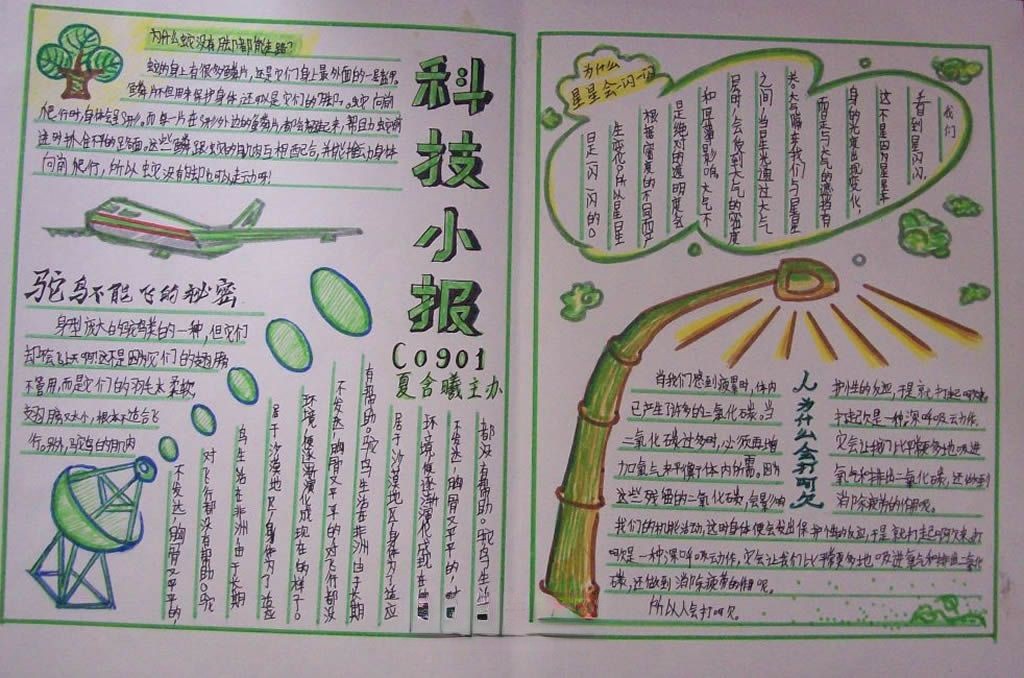 为什么蛇没有脚都能走路?
蛇的身上有很多鳞片,这是它们身上最外面的一层
鳞片不但用来保护身体,还
爬行时身体会呈S形。而每一片在S形外边的鳞片都会翘起来,帮助蛇前
进时抓住不平的
向前爬行,所以蛇没有脚也可以走动呀!
科技小报
C0901
夏含曦主办
驼鸟不能飞的秘密
身型庞大的鸵鸟是鸟类的一种,但它们
却
不管用,而是它们的羽毛太柔软,
翅膀太小,根本不适合飞
行。另外,驼鸟的肌肉
不发达,胸骨又平平的
对飞行都没有帮助。驼
鸟生活在非洲由于长期
居于沙漠地区,身体为了适应
环境,便逐渐演化成现在的样子。
不发达,胸骨又平平的对飞行都没
有帮助。驼鸟生活在非洲由于长期
居于沙漠地区,身体为了适应
环境,便逐渐演化成现在的
不发达,胸骨又平平的,
都没有帮助。驼鸟生活
为什么
星星会一闪一闪
我们
看到星闪闪,
这不是因为星星本
身的光度出现变化,
而是与大气的遮挡有
关。大气隔在我们与星星
之间,当星光通过大气
层时,会受到大气的密度
和厚薄影响。大气不
是绝对的透明度会
根据密度的不同而产
生变化。所以星星
是一闪一闪的。
人为什么会打呵欠
当我们感到疲累时,体内
已产生了许多的二氧化碳。当
二氧化碳过多时,必须再增
加氧气来平衡体内的需。因为
这些残留的二氧化碳,会影响
我们的机能活动,这时身体便会发出保护性的反应,于是就打起呵欠来。打
呵欠是一种深呼吸动作,它会让我们比平常更多地吸进氧气和排出二氧化
碳,还做到消除疲劳的作用呢。
所以人会打呵欠。
护性的反应,于是就打起呵欠来
打起欠是一种,深呼吸动作,
它会让我们比平常更多地吸进
氧气和排出二氧化碳,还做到
消除疲劳的作用呢。